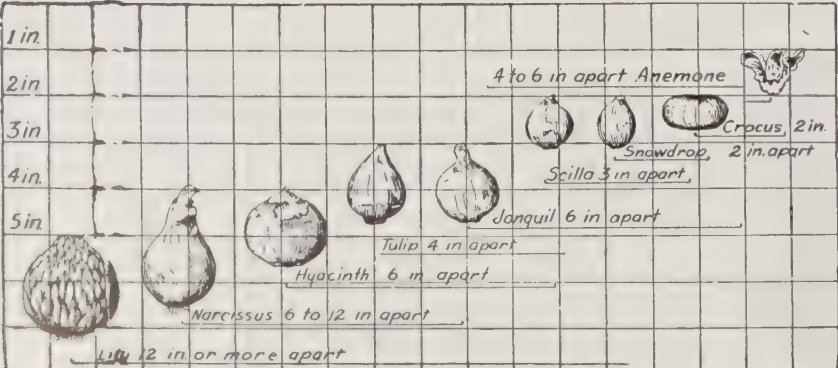 1 in.
2 in
3 in
4 in.
5 in.
4 to 6 in apart Anemone
Crocus, 2 in.
Snowdrop, 2 in. apart
Scilla 3 in apart
Jonquil 6 in apart
Tulip 4 in apart
Hyacinth 6 in apart
Narcissus 6 to 12 in apart
Lily 12 in. or more apart